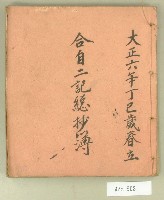 大正六年丁巳歳春立
合自二記總抄簿